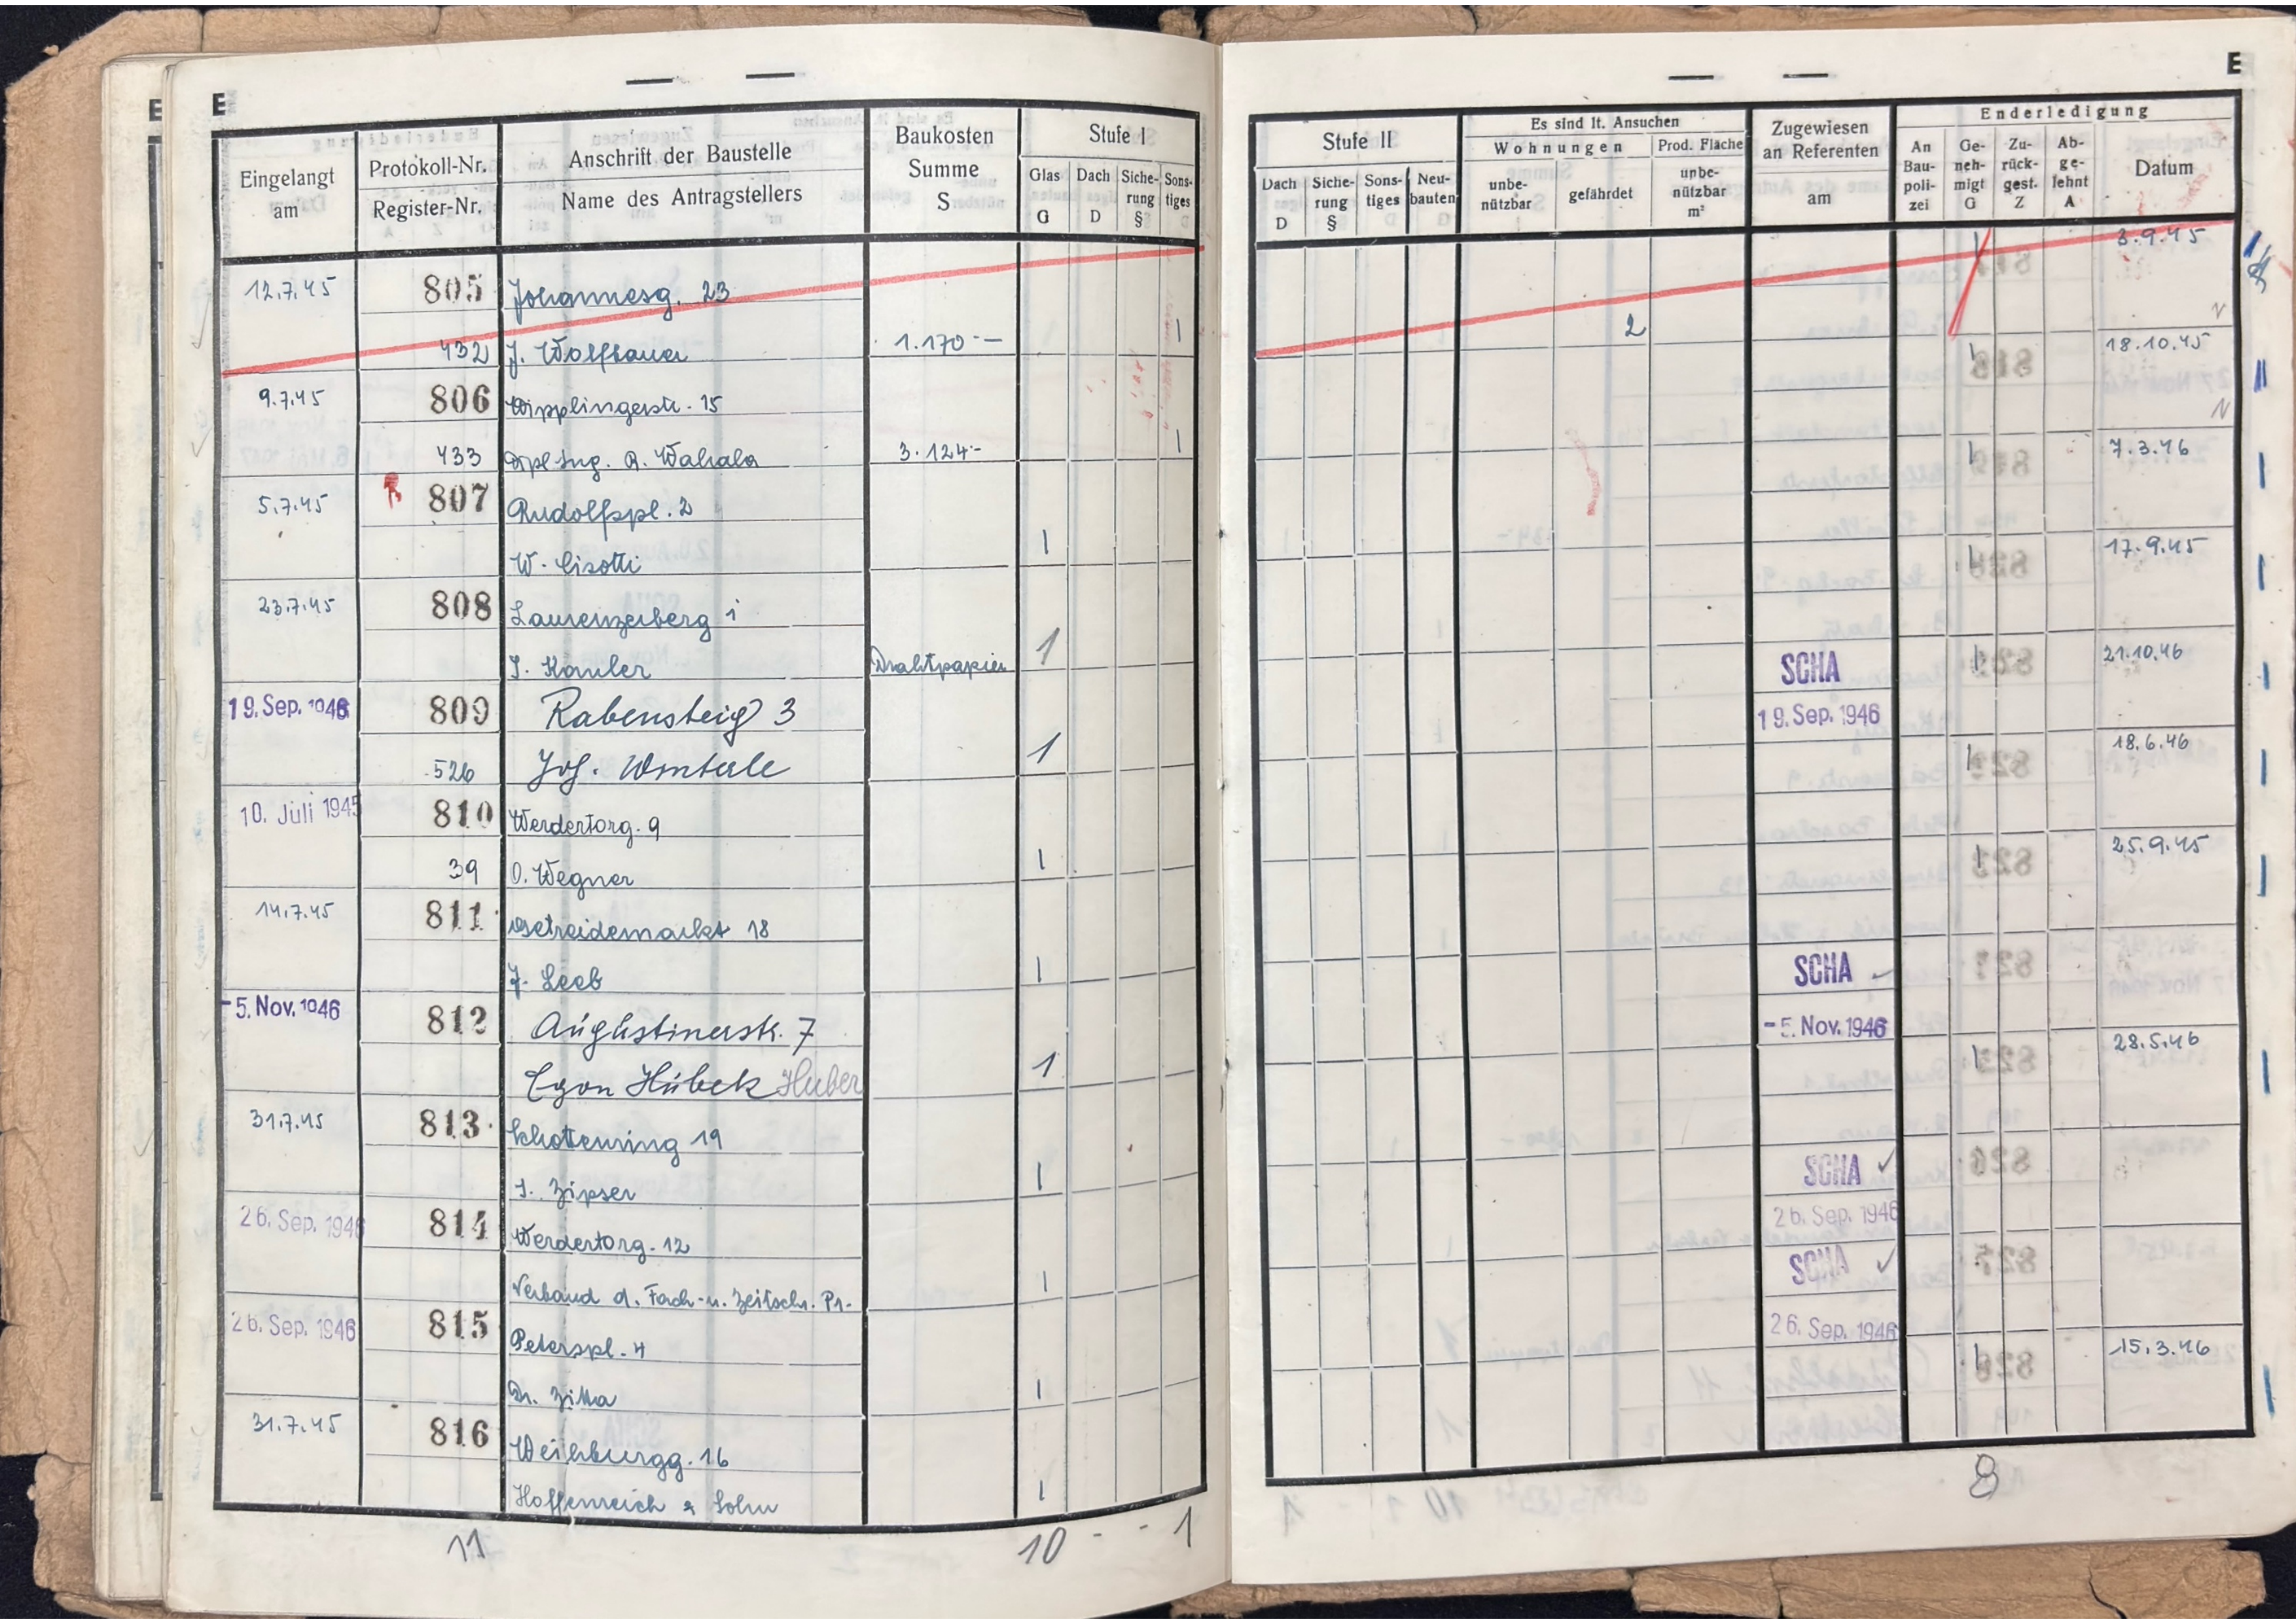 E
Eingelangt am
Protokoll-Nr.
Register-Nr.
Anschrift der Baustelle
Name des Antragstellers
Baukosten
Summe
S
Stufe I
Glas G
Dach D
Siche-rung §
Sons-tiges
12.7.45 805 Johannesg. 23
432 J. Wolfbauer 1.170.— 1
9.7.45 806 Wipplingerstr. 15
433 Dipl Ing. R. Wahala 3.124.- 1
5.7.45 807 Rudolfspl. 2
W. Cisotti 1
23.7.45 808 Laurenzerberg 1
J. Kanler Drahtpapier 1
19. Sep. 1946 809 Rabensteig 3
526 Jos. 1
10. Juli 1945 810 Werdertorg. 9
39 O. Wegner 1
14.7.45 811 Getreidemarkt 18
J. Leeb 1
-5. Nov. 1946 812 Augustinerstr. 7
Egon Hübek Huber 1
31.7.45 813 Schottenring 19
J. Zipser 1
26. Sep. 1946 814 Werdertorg. 12
Verband d. Fach- u. Zeitschr. Pr. 1
26. Sep. 1946 815 Peterspl. 4
Dr. 1
31.7.45 816 Weihburgg. 16
Hoffenreich & Sohn 1
11 10 - - 1
E
Stufe II
Dach D
Siche-rung §
Sons-tiges
Neu-bauten
Es sind lt. Ansuchen
Wohnungen
unbe-nützbar
gefährdet
Prod. Fläche
unbe-nützbar m²
Zugewiesen an Referenten am
Enderledigung
An Bau-poli-zei
Ge-neh-migt G
Zu-rück-gest. Z
Ab-ge-lehnt A
Datum
1 3.9.45
2 N
1 18.10.45
N
1 7.3.46
1 17.9.45
SCHA 1 21.10.46
19. Sep. 1946
1 18.6.46
1 25.9.45
SCHA
-5. Nov. 1946
1 28.5.46
SCHA
26. Sep. 1946
SCHA
26. Sep. 1946
1 15.3.46
8